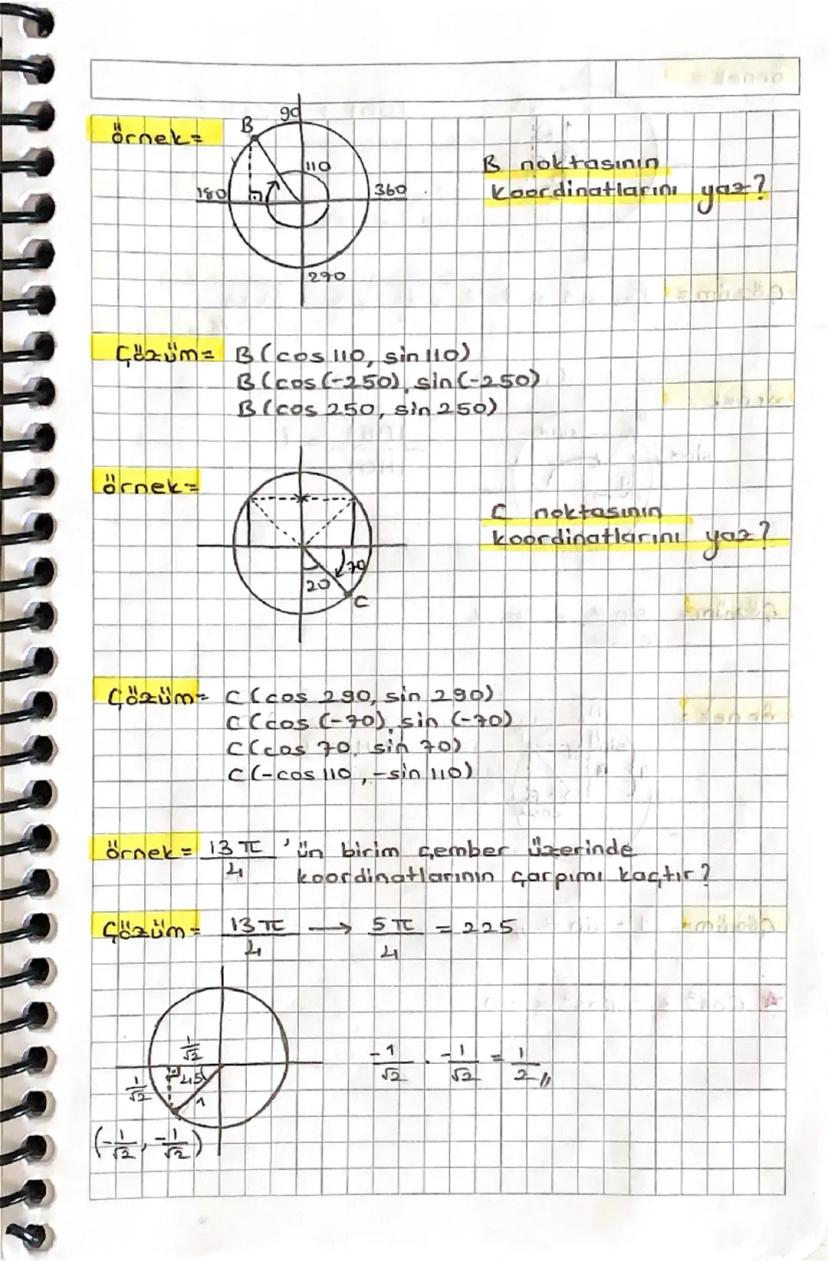 örnek=
B
90
110
180
360
270
B noktasının
koordinatlarını yaz?
Çözüm= B(cos 110, sin 110)
B(cos(-250), sin(-250)
B(cos 250, sin 250)
örnek=
70
20
C
C noktasının
koordinatlarını yaz?
Çözüm= C(cos 290, sin 290)
C(cos (-70), sin (-70)
C(cos 70, sin 70)
C(-cos 110, -sin 110)
örnek= 13π/4 'ün birim çember üzerinde
koordinatlarının çarpımı kaçtır?
Çözüm= 13π/4 → 5π/4 = 225
1/√2
45
1/√2
1
(-1/√2, -1/√2)
-1/√2 . -1/√2 = 1/2 //